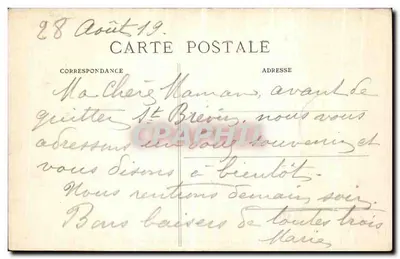 28 Août 19.
CARTE POSTALE
CORRESPONDANCE
ADRESSE
Ma Chère Maman, avant de
quitter St Brévin, nous vous
adressons un doux souvenir et
vous disons à bientôt.
Nous rentrons demain soir.
Bons baisers de toutes trois
Marie
CPAPHIL